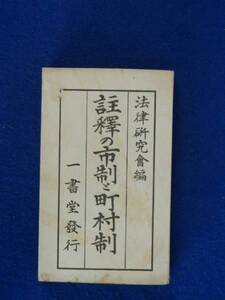 法律研究會編
註釋の市制と町村制
一書堂發行